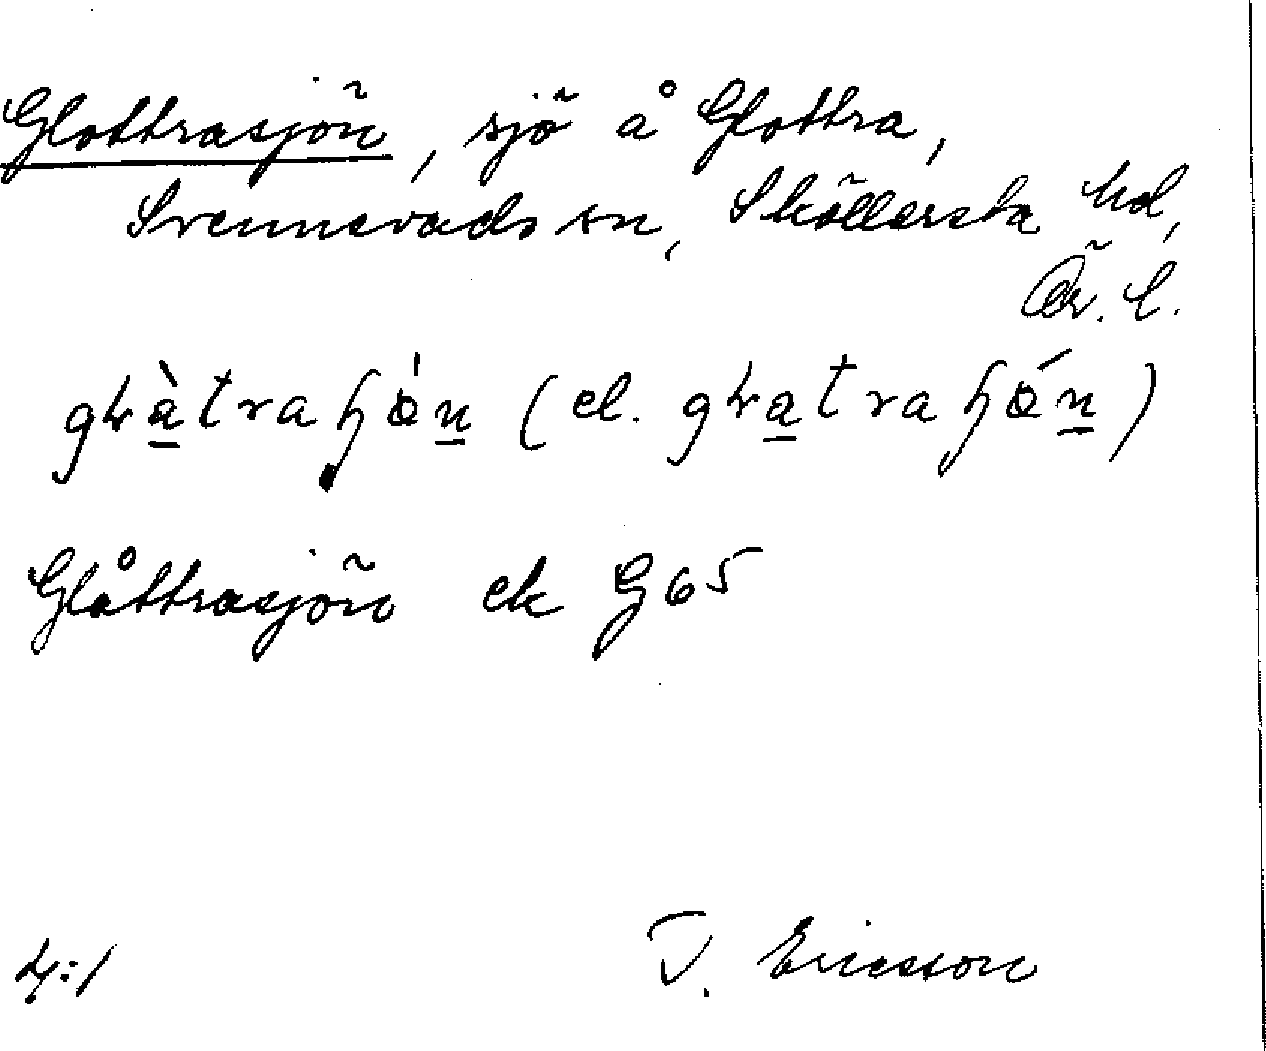 Glottrasjön, sjö å Glottra,
Svennevads sn, Sköllersta hd,
Ör. l.
(el.
Glåttrasjön ek G 65
4:1 T. Ericsson